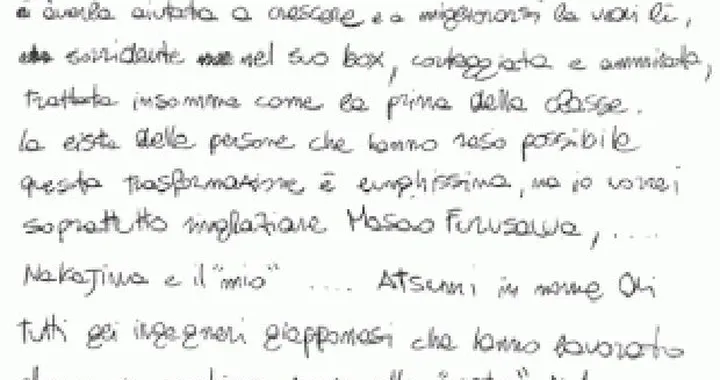 e averla aiutata a crescere e a migliorarsi la vedi lì,
sorridente nel suo box, corteggiata e ammirata,
trattata insomma come la prima della classe.
La lista delle persone che hanno reso possibile
questa trasformazione è lunghissima, ma io vorrei
soprattutto ringraziare Masao Furusawa, ....
Nakajima e il "mio" .... Atsumi in nome di
tutti gli ingegneri giapponesi che hanno lavorato